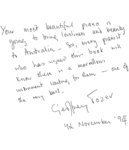 Your most beautiful piano is
going to bring loveliness and beauty
to Australia. So, every pianist
who has signed this book will
know there is a marvellous
instrument waiting for them - one of
the very best.
Geoffrey Tozer
4th November '94